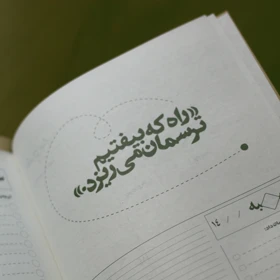 «راه که بیفتیم
ترسمان می‌ریزد.»
به / / ۱۴